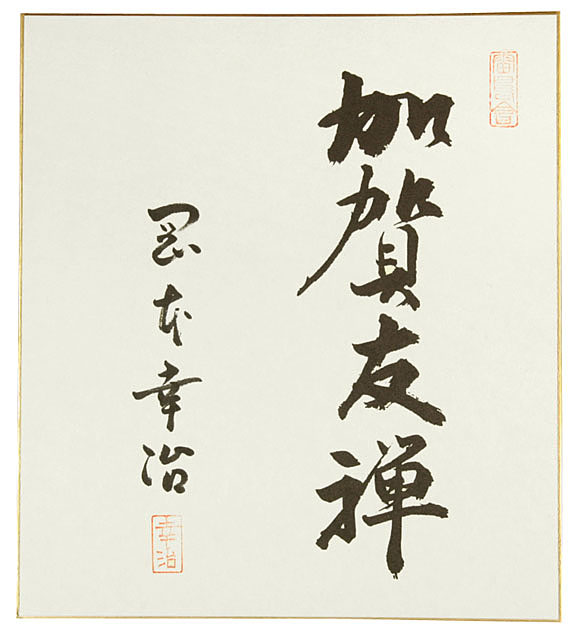 加賀友禅
岡本幸治
幸治